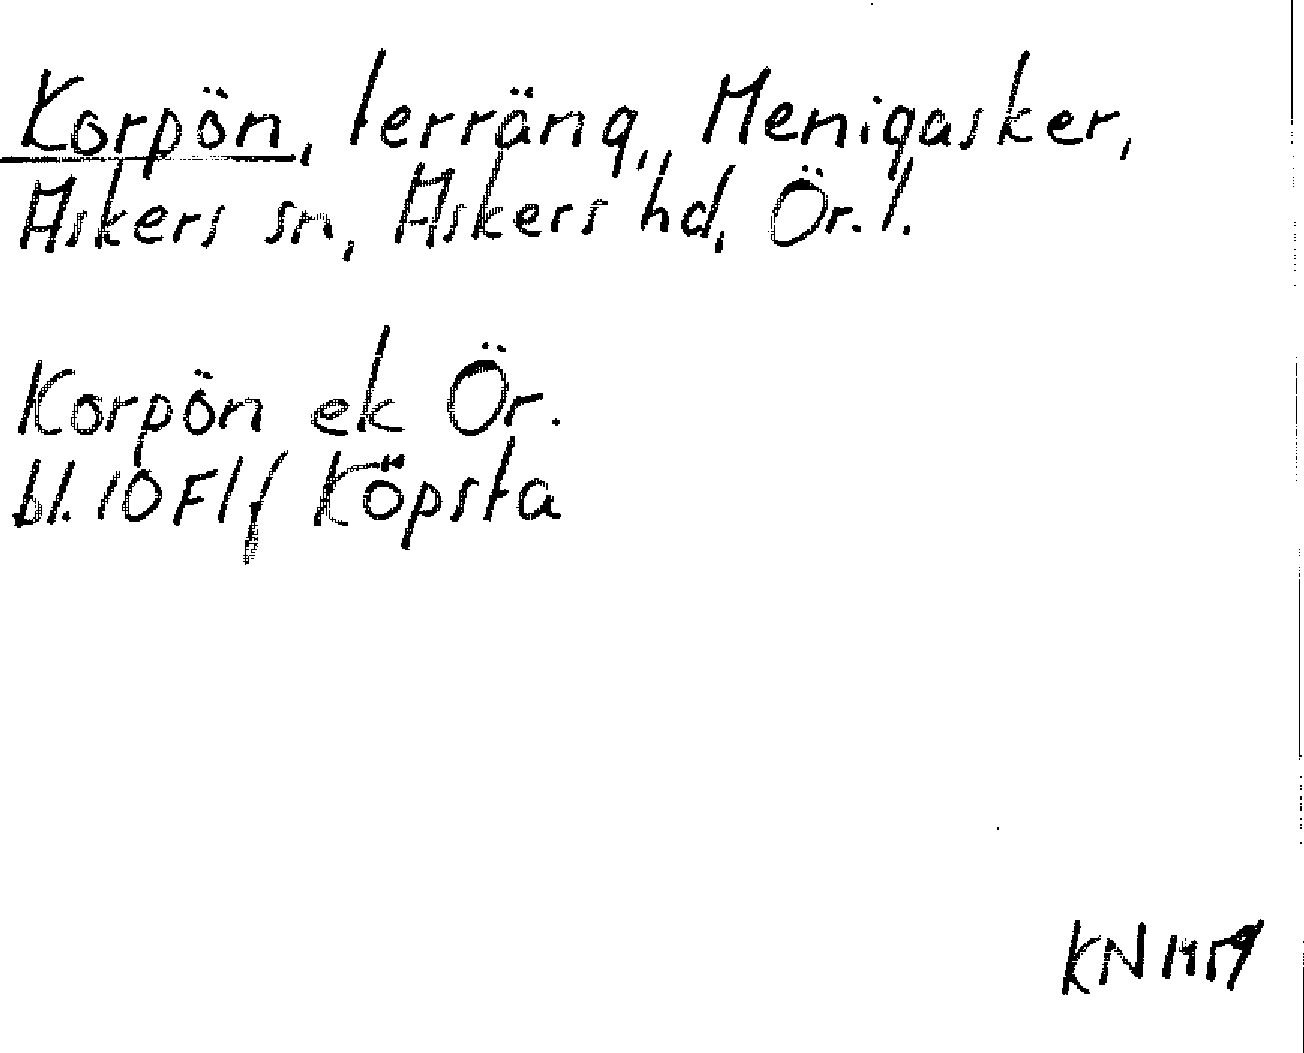 Korpön, terräng, Menigasker,
Askers sn, Askers hd, Ör. l.
Korpön ek Ör.
bl. 10F1f Köpsta
KN 1959